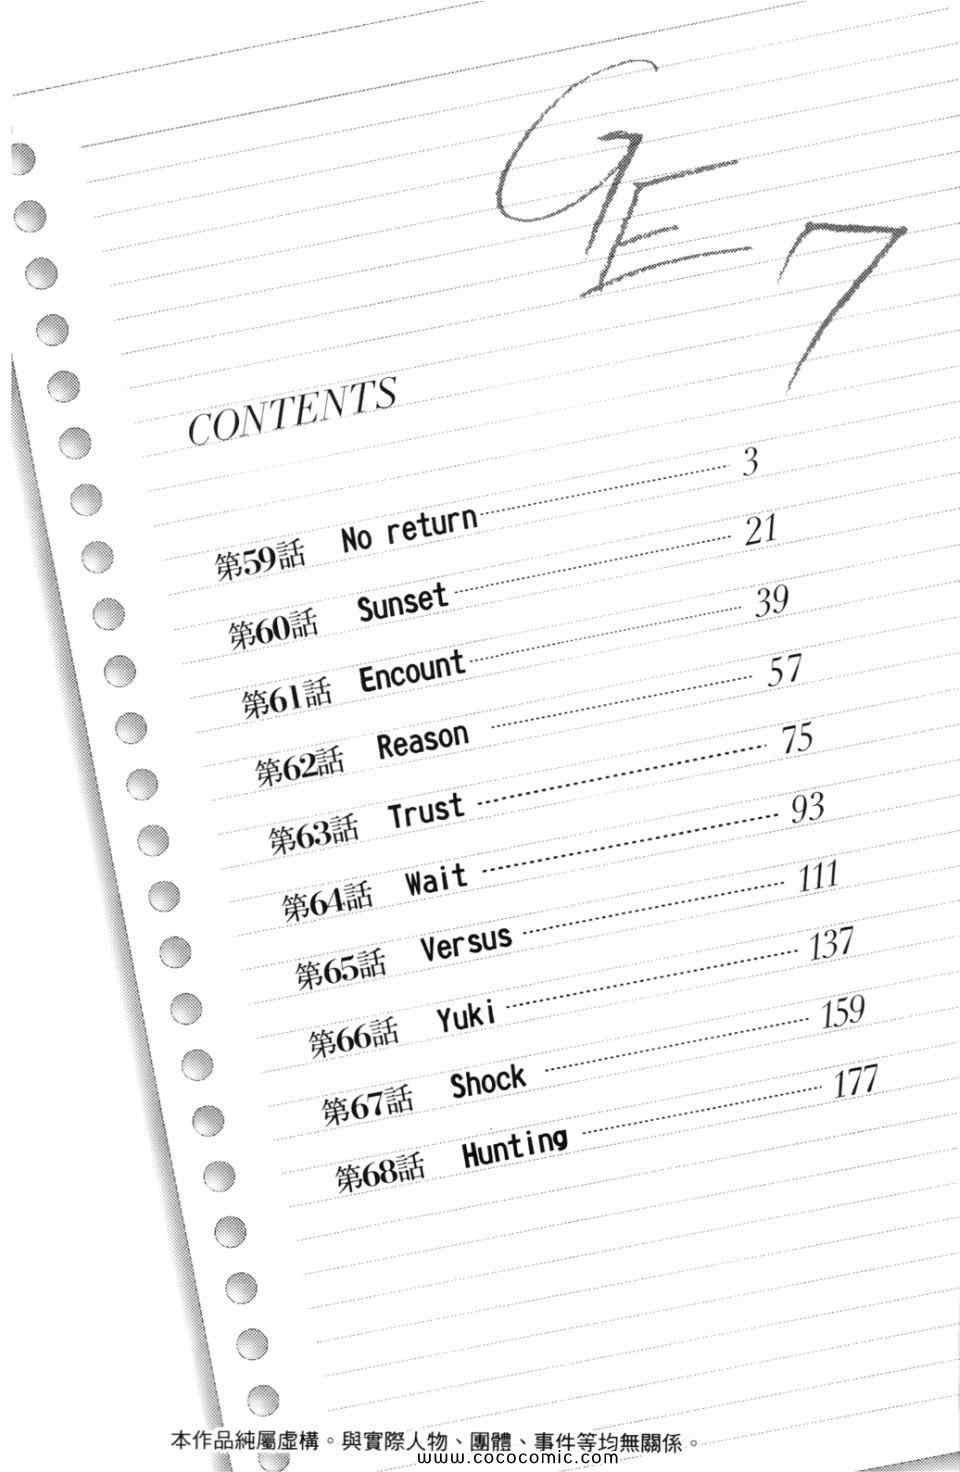 GE
7
CONTENTS
第59話 No return 3
第60話 Sunset 21
第61話 Encount 39
第62話 Reason 57
第63話 Trust 75
第64話 Wait 93
第65話 Versus 111
第66話 Yuki 137
第67話 Shock 159
第68話 Hunting 177
本作品純屬虛構。與實際人物、團體、事件等均無關係。
www.cococomic.com